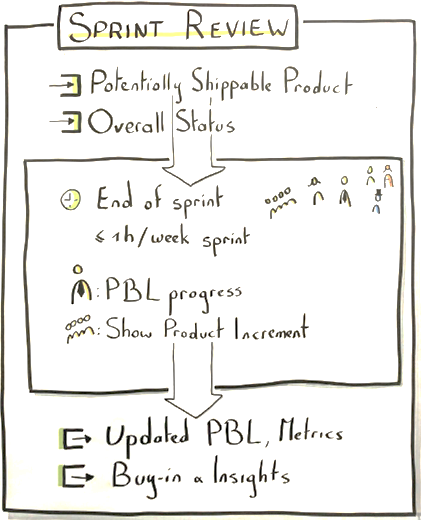 SPRINT REVIEW
Potentially Shippable Product
Overall Status
End of sprint
≤ 1h/week sprint
: PBL progress
: Show Product Increment
Updated PBL, Metrics
Buy-in & Insights